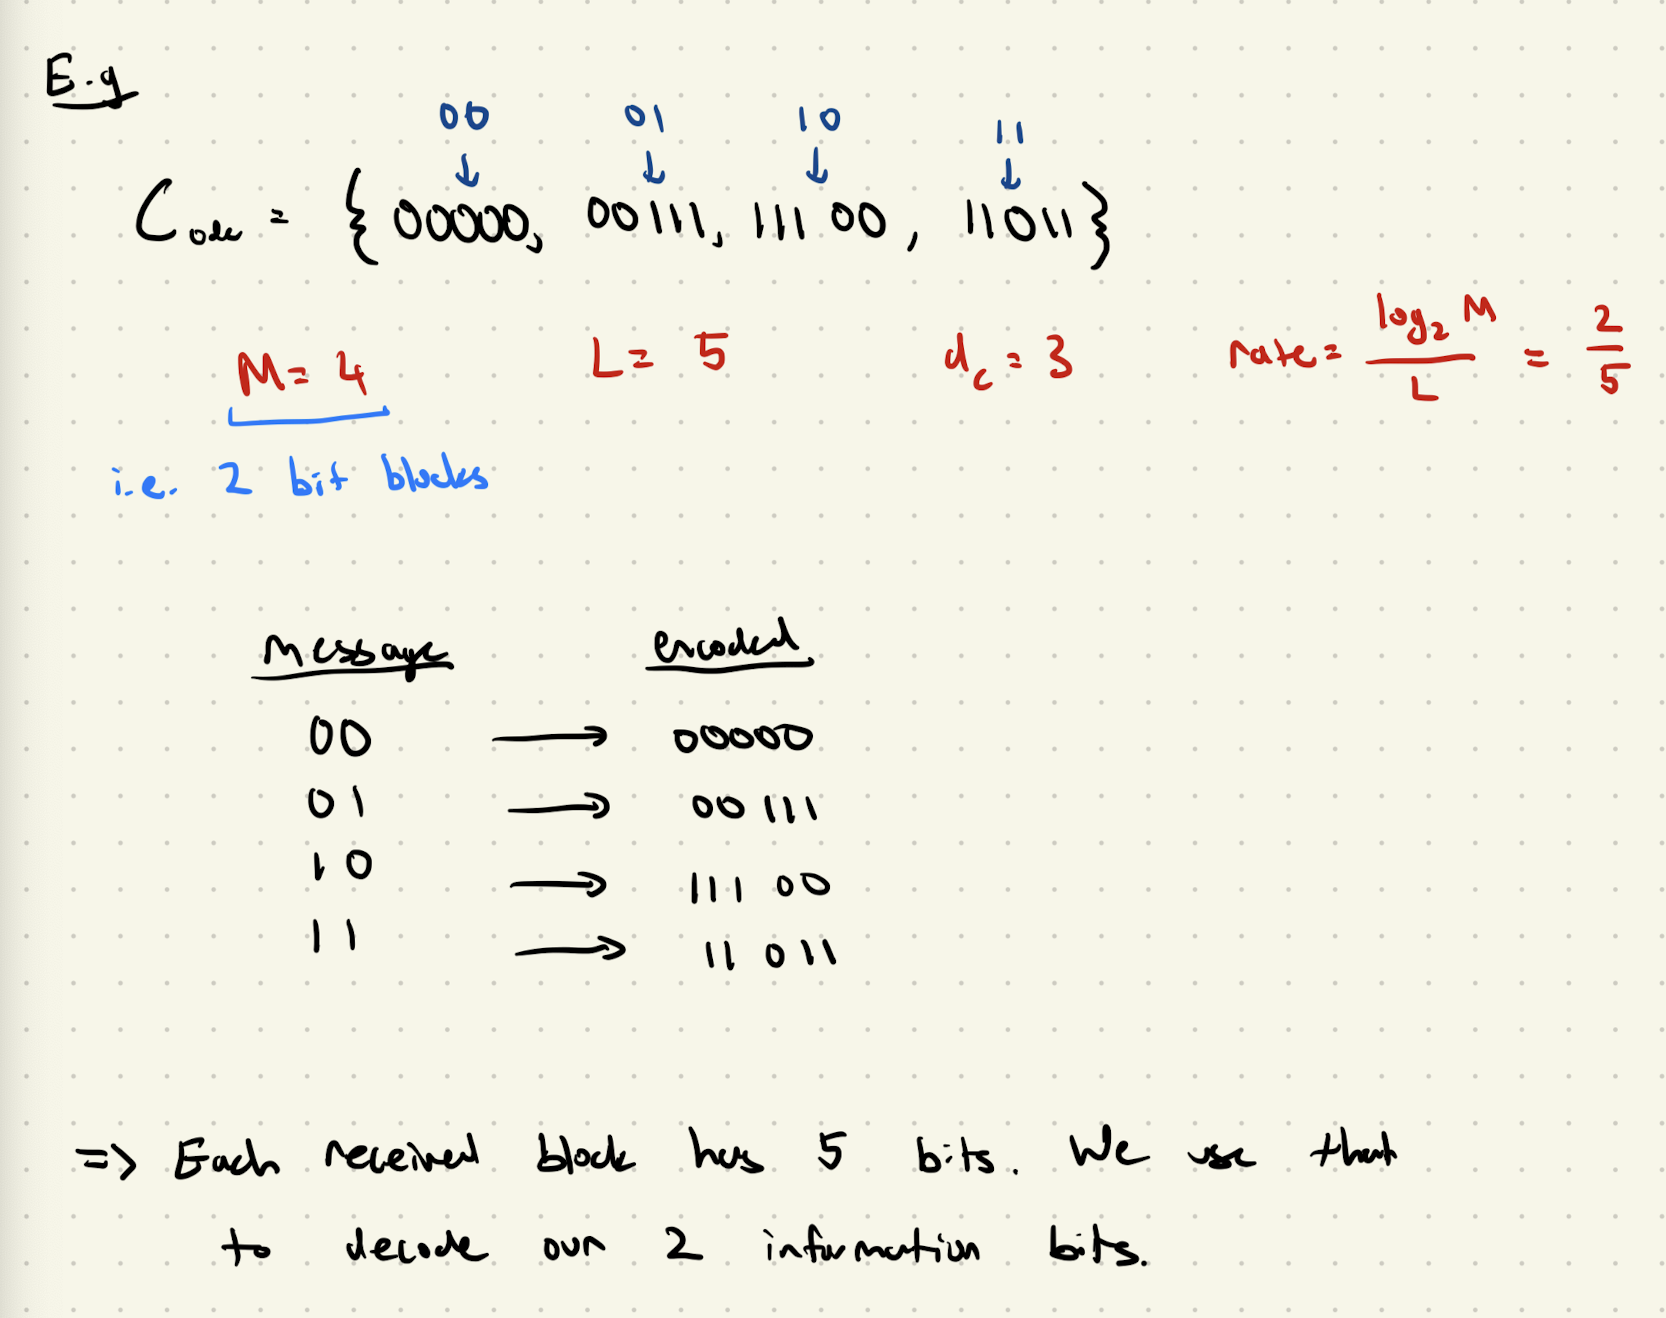 E.g
00 01 10 11
↓ ↓ ↓ ↓
Code = { 00000, 00111, 11100, 11011 }
M = 4 L = 5 d_c = 3 rate = log₂ M / L = 2/5
i.e. 2 bit blocks
Message encoded
00 → 00000
01 → 00111
10 → 11100
11 → 11011
=> Each received block has 5 bits. We use that
to decode our 2 information bits.